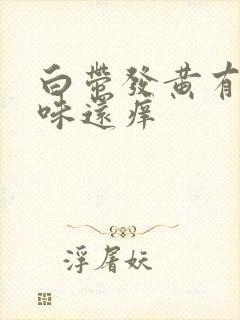 白帶發黃有
味還痒
浮屠妖